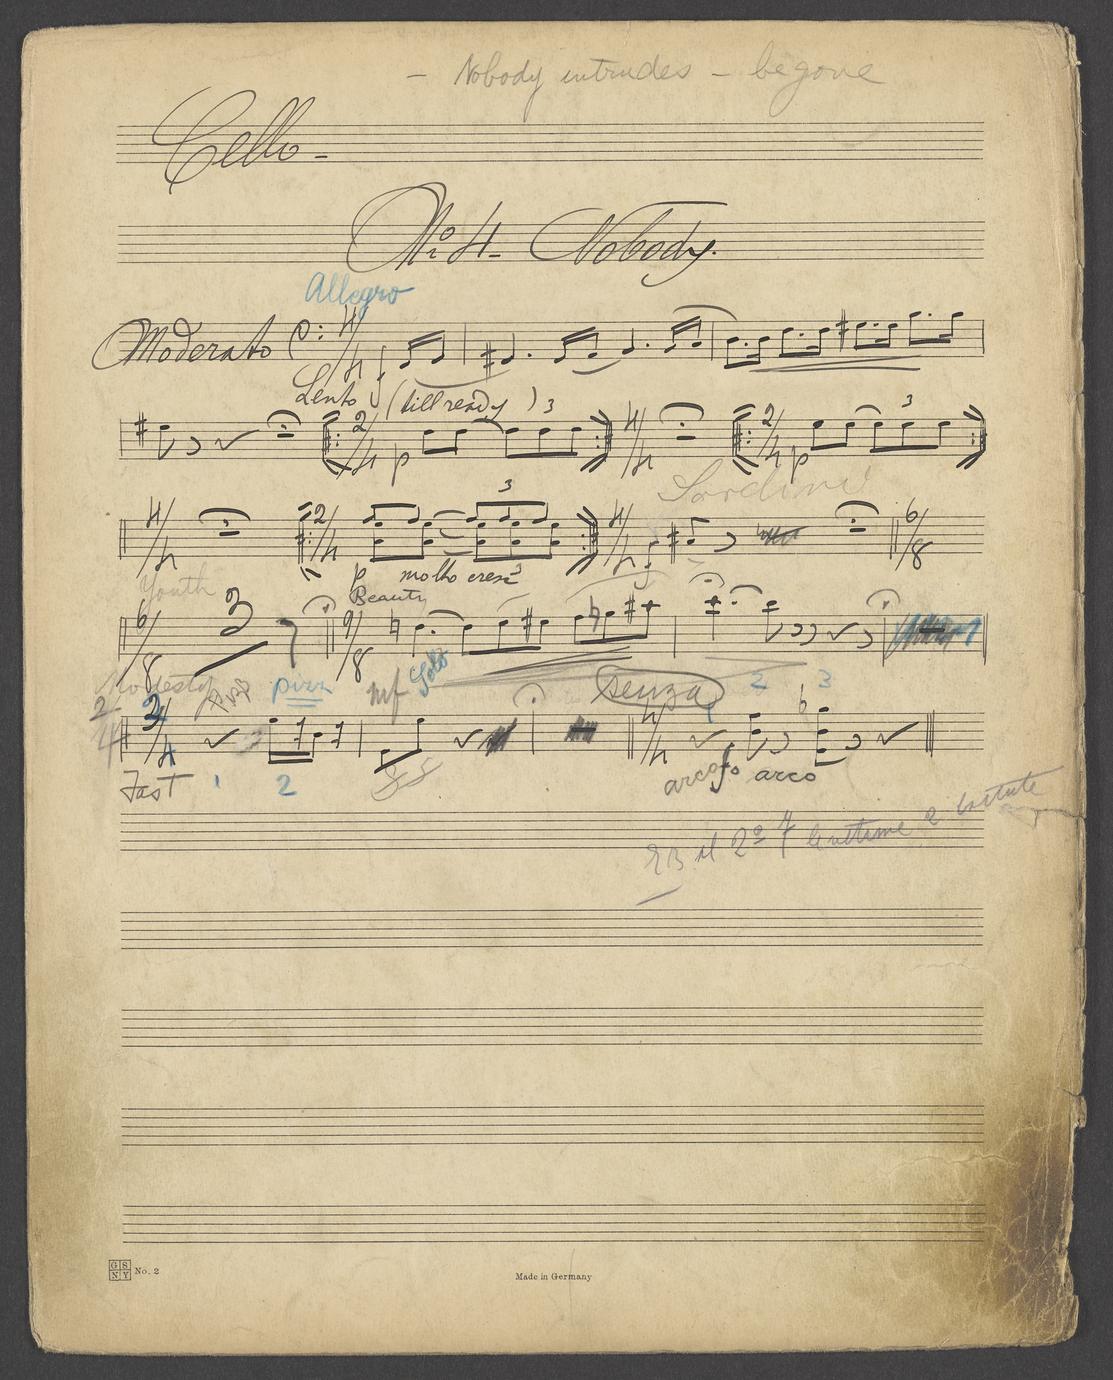 – Nobody intrudes – begone
Cello –
No 4 – Nobody.
Allegro
Moderato 4/4 f
Lento (till ready) 3
2/4 p 4/4 2/4 p 3
Sordini
4/4 2/4 3 4/4 f 6/8
p molto cresc
Youth Beauty
6/8 3 7 9/8
Modesty ppp pizz mf Solo senza 2 3
2/4 2/4 4/4 1
Fast 1 2 arco fo arco
il 2º 4 battute
GS NY No. 2 Made in Germany